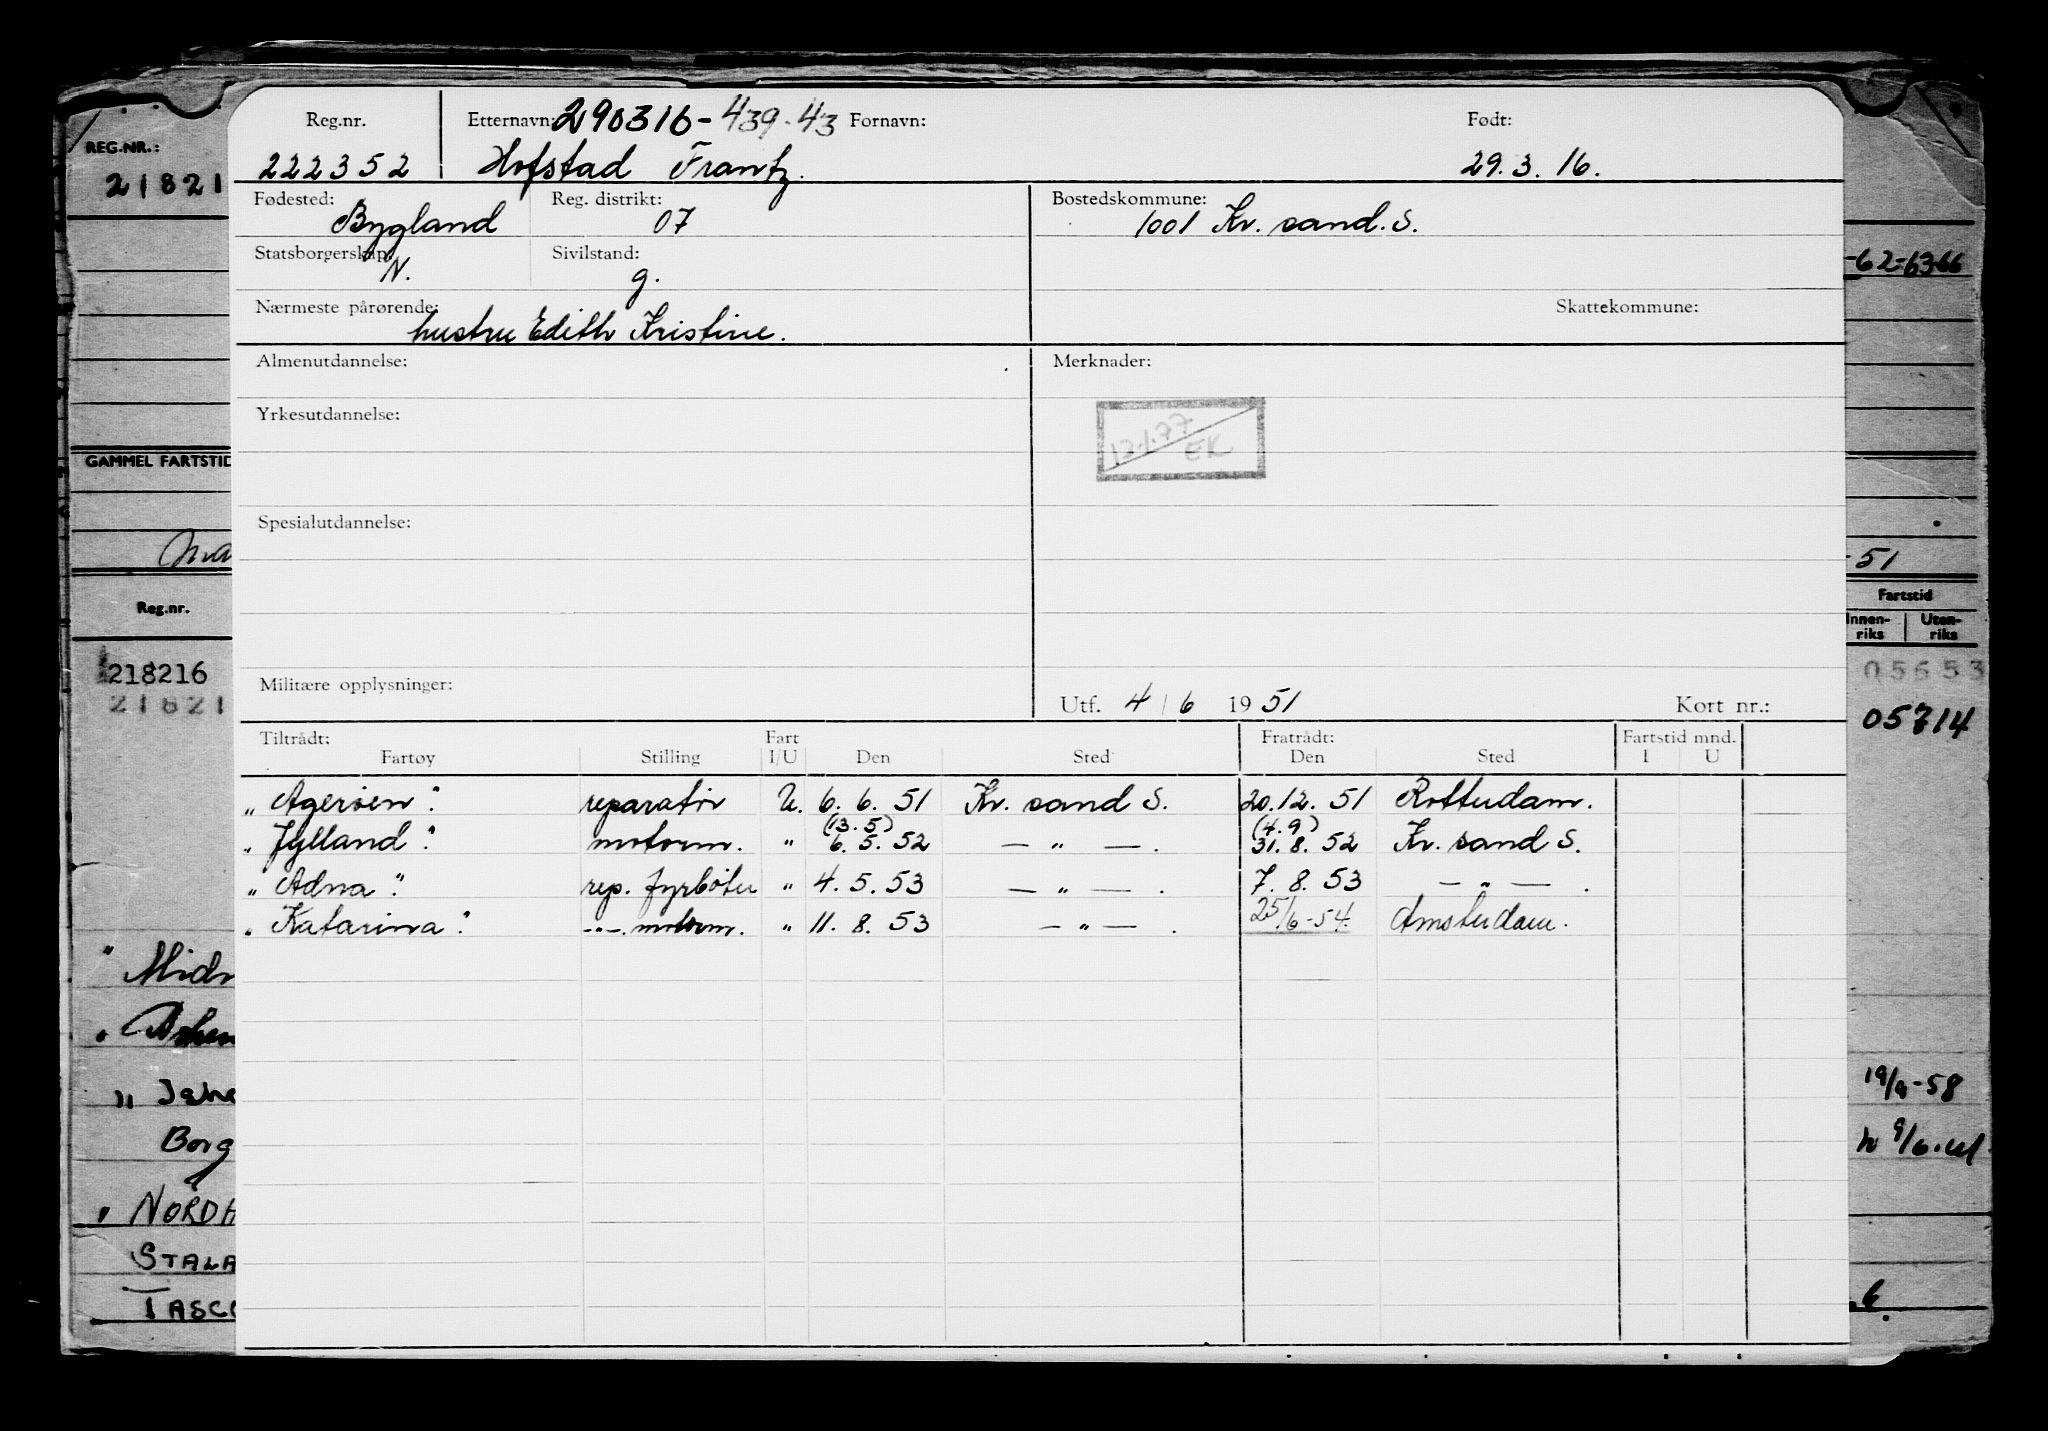 Reg.nr. Etternavn: 290316-439-43 Fornavn: Født:
222352 Hofstad Frantz. 29.3.16.
Fødested: Bygland Reg. distrikt: 07 Bostedskommune: 1001 Kr. sand. S.
Statsborgerskap: N. Sivilstand: g.
Nærmeste pårørende: hustru Edith Kristine. Skattekommune:
Almenutdannelse: Merknader:
Yrkesutdannelse:
12.1.77 EK
Spesialutdannelse:
Militære opplysninger:
Utf. 4/6 1951 Kort nr.:
Tiltrådt: Fart Fratrådt: Fartstid mnd.
Fartøy Stilling I/U Den Sted Den Sted I U
"Agerøen" reparatør U. 6.6.51 Kr. sand S. 20.12.51 Rotterdam.
(13.5) (4.9)
"Jylland" motorm. " 6.5.52 — " — . 31.8.52 Kr. sand S.
"Adna" rep. fyrbøter " 4.5.53 — " — . 7.8.53 — " — .
"Katarina" -"-. motorm. " 11.8.53 — " — . 25/6-54. Amsterdam.
REG.NR.:
21821
GAMMEL FARTSTID
Reg.nr.
218216
21821
" Midn
" Jahr
Borg
" NORDH
STALA
TASCO
-62-63-66
-51
Fartstid
Innen-riks Uten-riks
05653
05714
19/9-58
6.